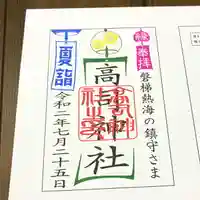 奉拝
磐梯熱海の鎮守さま
高詰神社
夏詣
令和二年七月二十五日